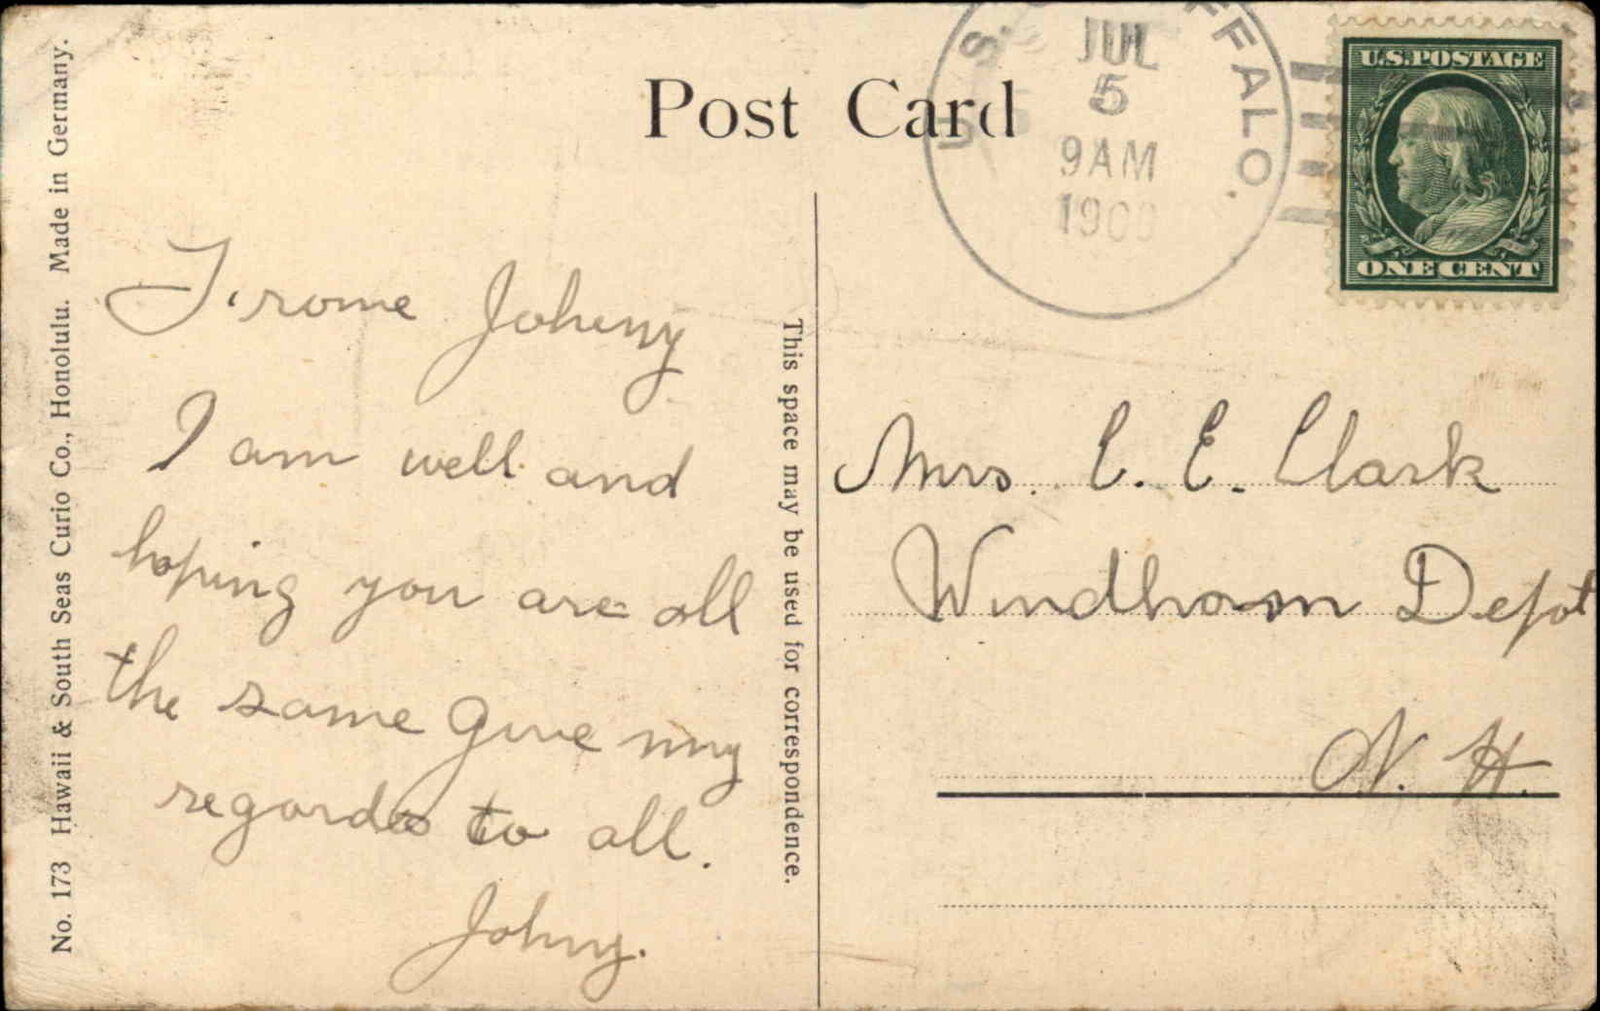 Post Card
U. S. S. BUFFALO.
JUL
5
9AM
1909
U.S. POSTAGE
ONE CENT
No. 173 Hawaii & South Seas Curio Co., Honolulu. Made in Germany.
This space may be used for correspondence.
Frome Johnny
I am well and
hoping you are all
the same Give my
regards to all.
Johny.
Mrs. C. E. Clark
Windham Depot
N. H.